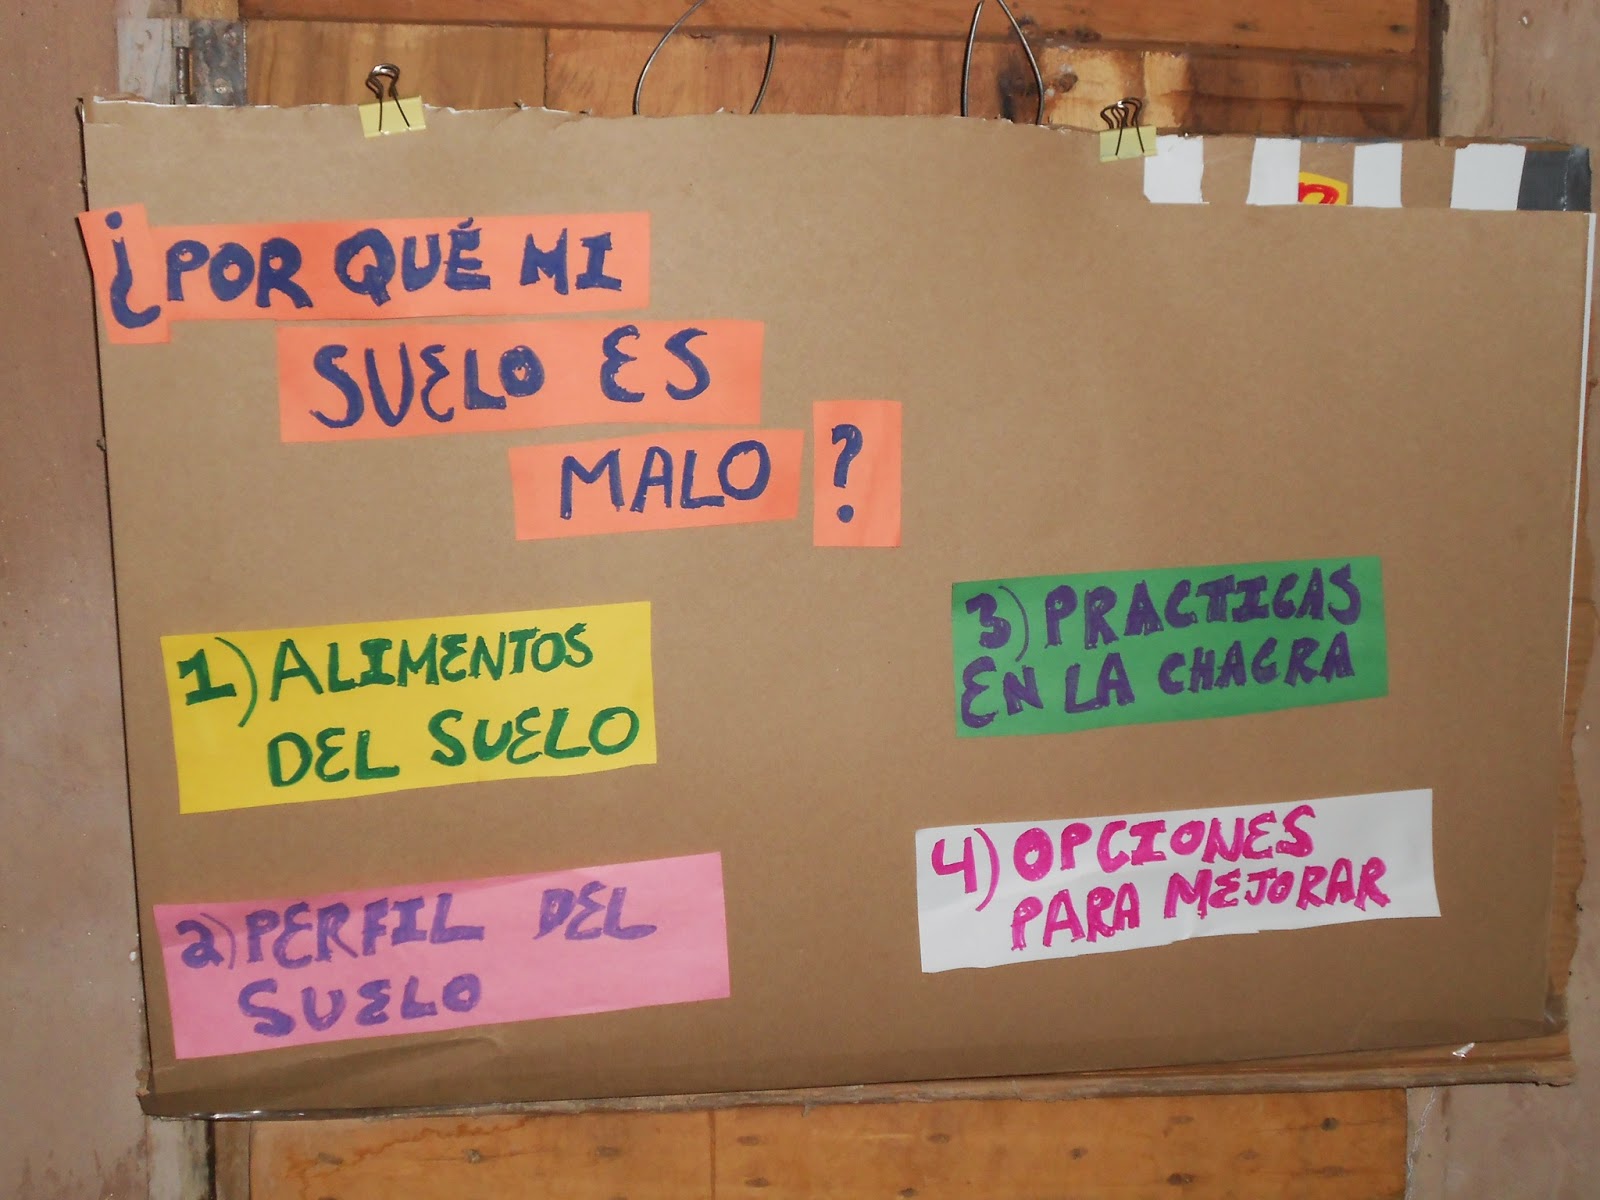 ¿POR QUÉ MI
SUELO ES
MALO?
1) ALIMENTOS
DEL SUELO
2) PERFIL DEL
SUELO
3) PRACTICAS
EN LA CHACRA
4) OPCIONES
PARA MEJORAR